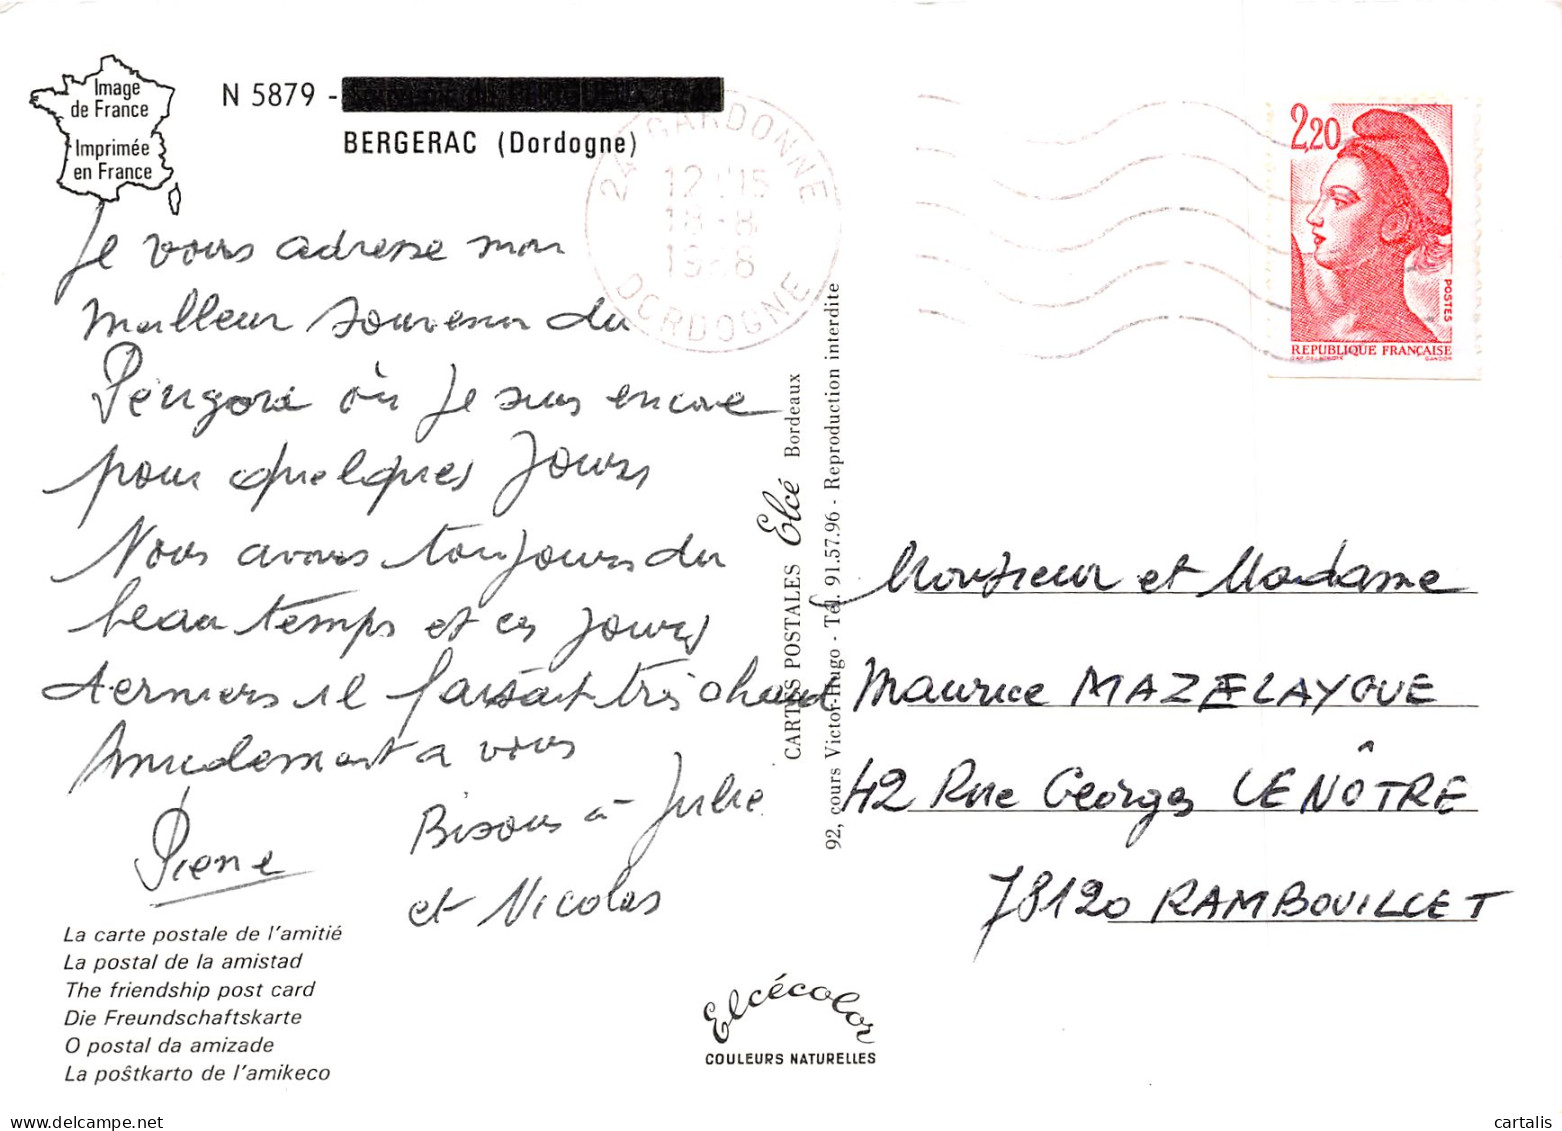 Image
de France
Imprimée
en France
N 5879 -
BERGERAC (Dordogne)
24 GARDONNE
12 H15
18-8
1988
DORDOGNE
2,20
POSTES
REPUBLIQUE FRANÇAISE
GANDON
Je vous adresse mon
meilleur souvenir du
Périgord où je suis encore
pour quelques jours
Nous avons toujours du
beau temps et ces jours
derniers il faisait très chaud
Amicalement a vous
Pierre
Bisous à Julie
et Nicolas
CARTES POSTALES Elcé Bordeaux
92, cours Victor-Hugo - Tél. 91.57.96 - Reproduction interdite
Monsieur et Madame
Maurice MAZELAYGUE
42 Rue Georges LENÔTRE
78120 RAMBOUILLET
La carte postale de l'amitié
La postal de la amistad
The friendship post card
Die Freundschaftskarte
O postal da amizade
La poŝtkarto de l'amikeco
Elcécolor
COULEURS NATURELLES
My-Card-Shop.com
cartalis